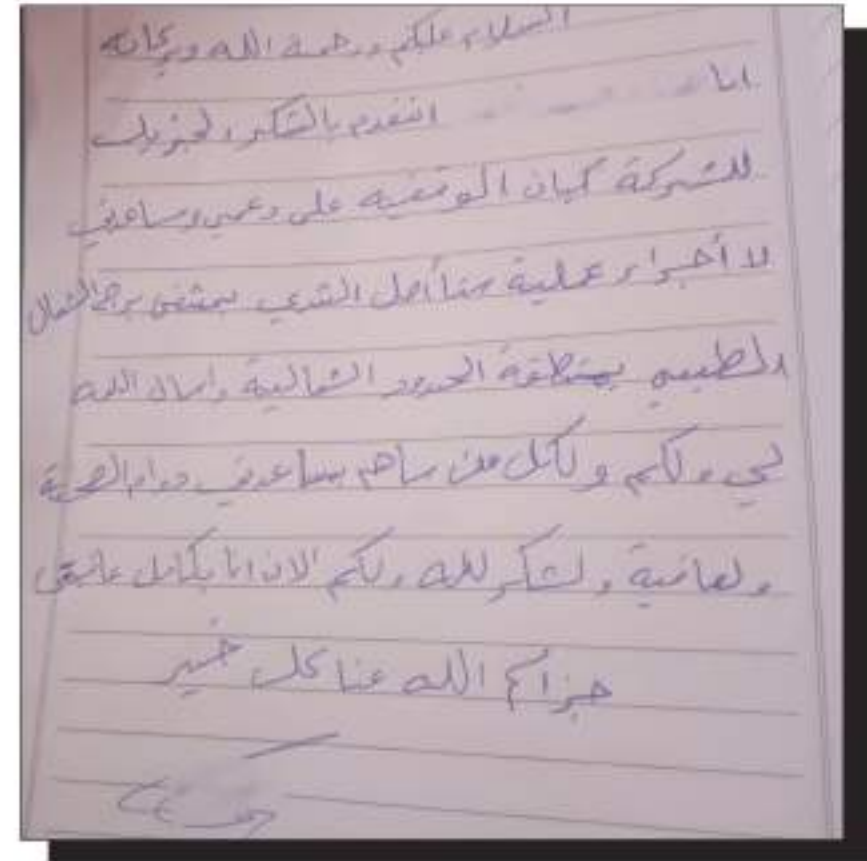 السلام عليكم ورحمة الله وبركاته
انا اتقدم بالشكر الجزيل
للشركة كيان الوقفيه على دعمي وساعدني
لا أجراء عملية ستأصل الثدي بمشفى برج الشمال
الطبيي بمنطقة الحدود الشمالية واسال الله
لي ولكم ولكل من ساهم بساعدني دوام الصحة
ولعافية ولشكر لله ولكم الان انا بكامل عافيتي
جزاكم الله عنا كل خير